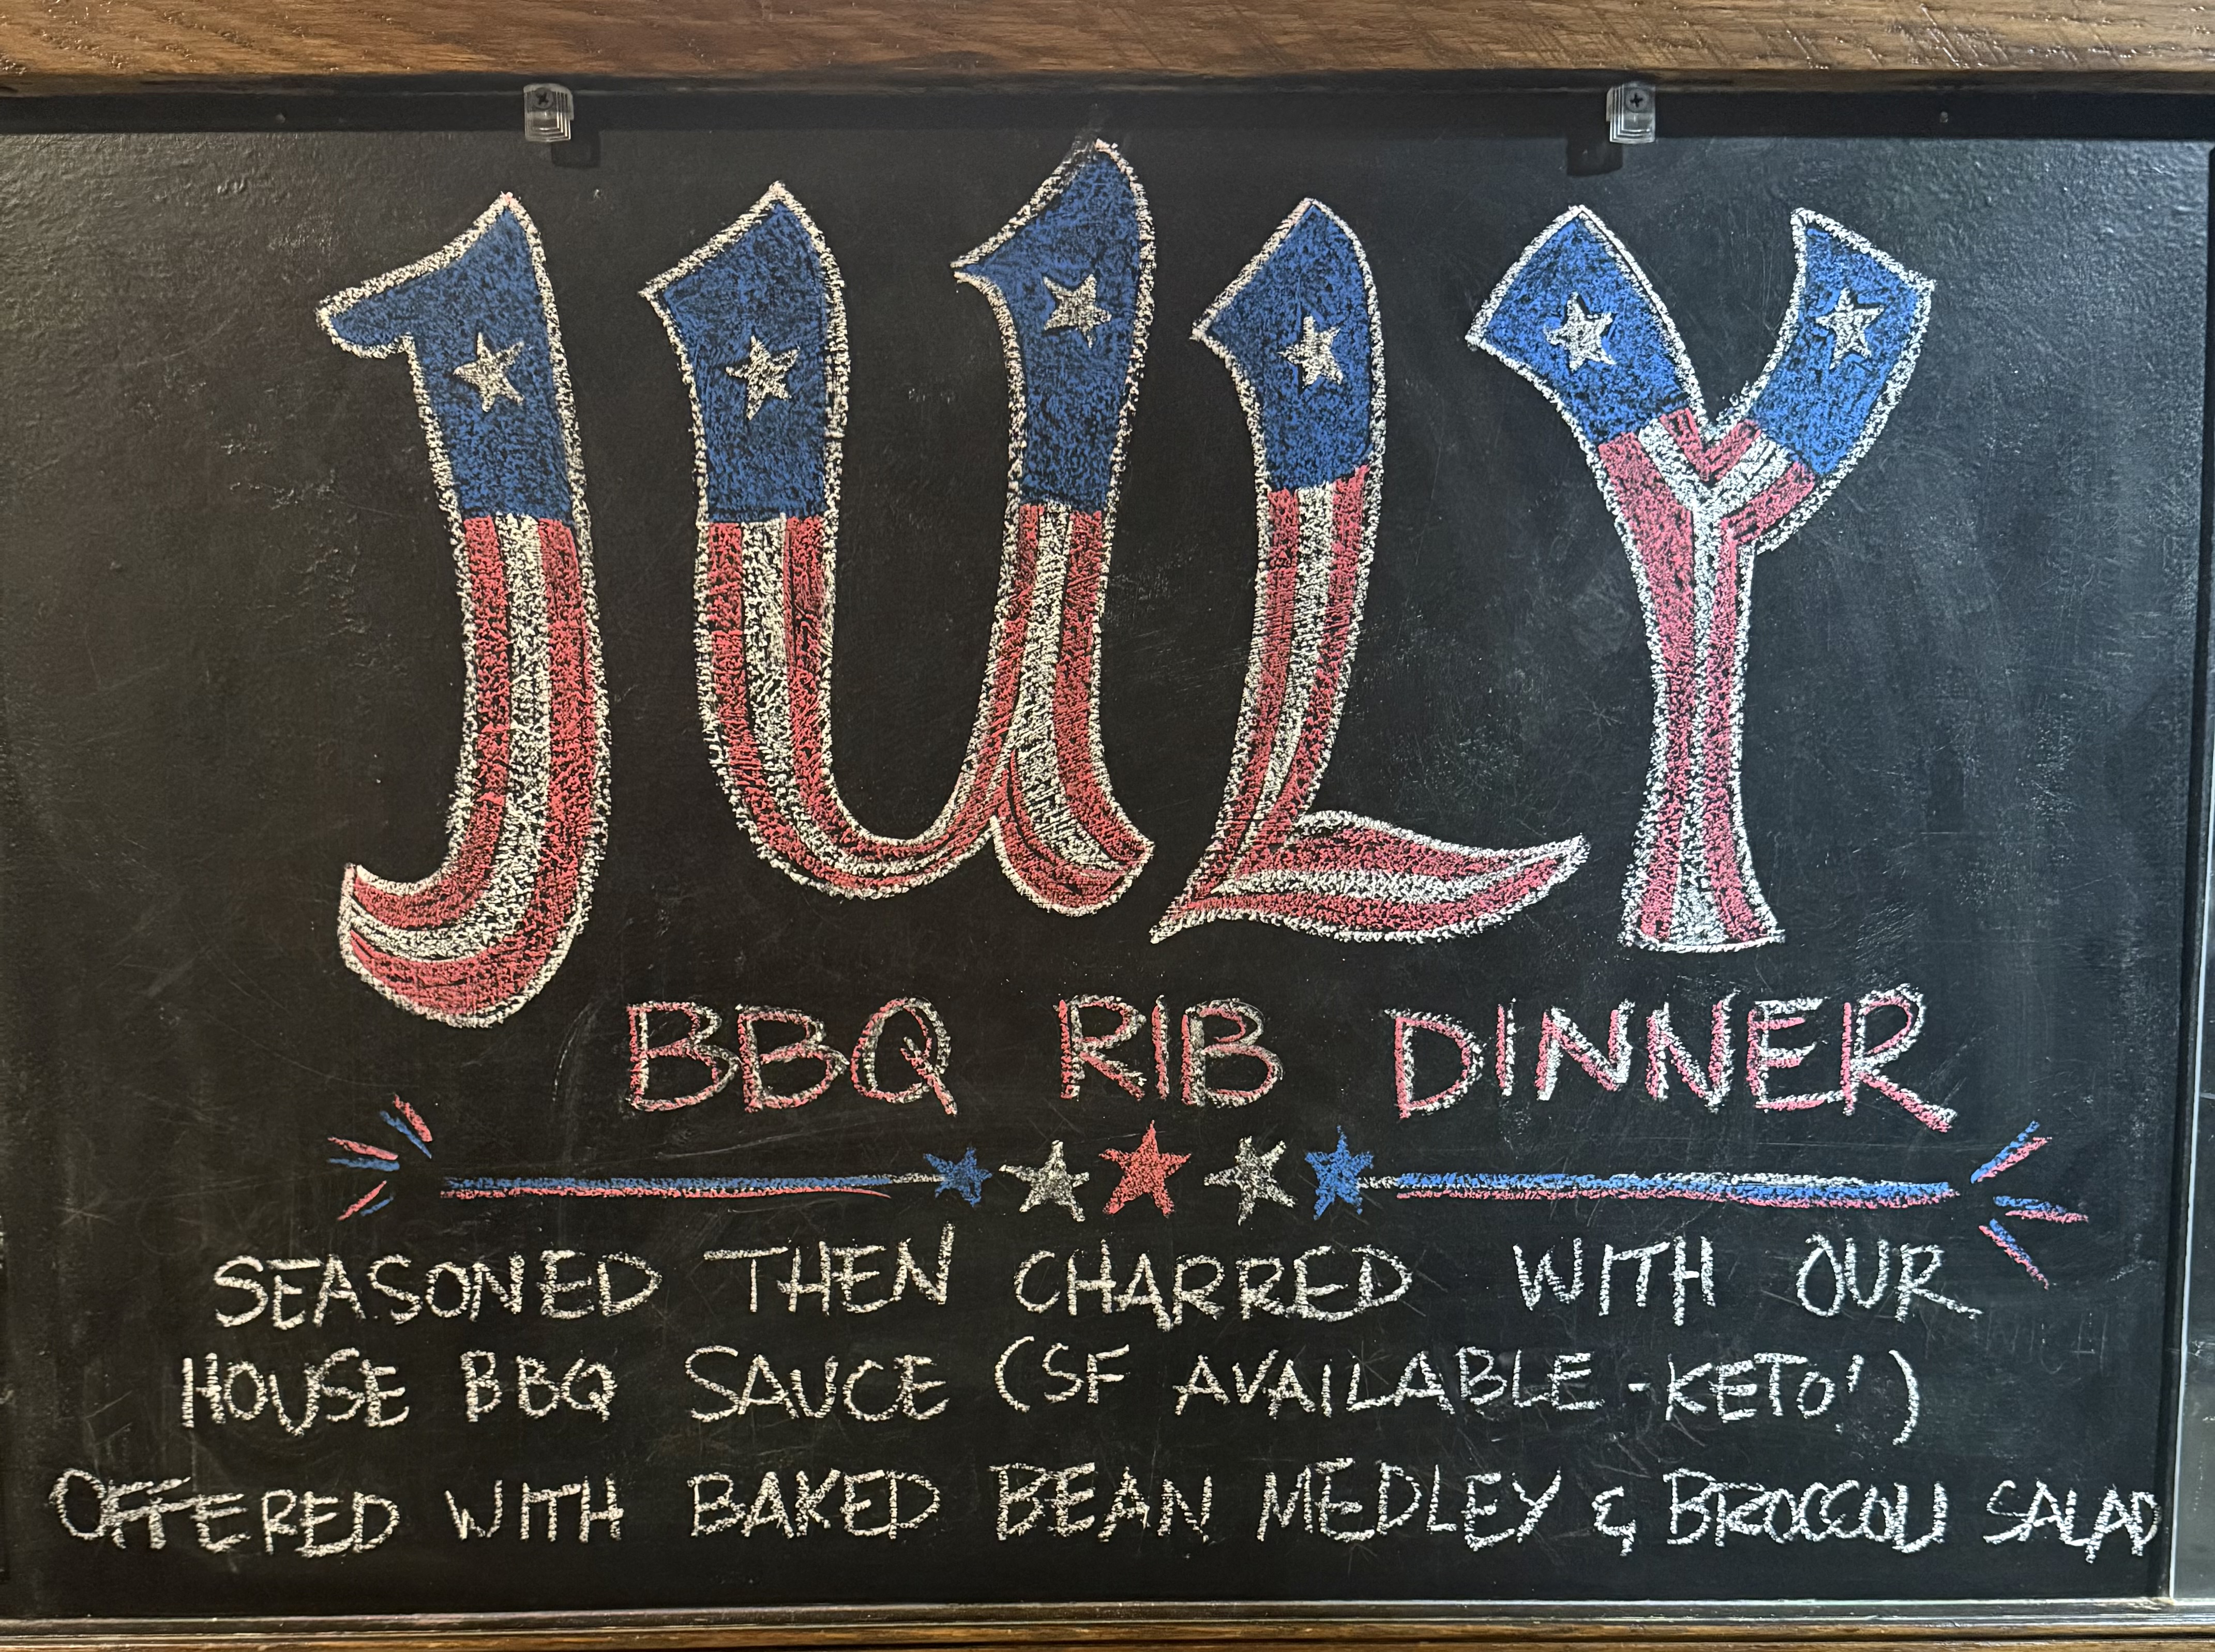 JULY
BBQ RIB DINNER
SEASONED THEN CHARRED WITH OUR
HOUSE BBQ SAUCE (SF AVAILABLE -KETO')
OFFERED WITH BAKED BEAN MEDLEY & BROCCOLI SALAD